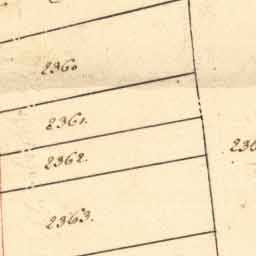 2360
2361.
2362.
2363.